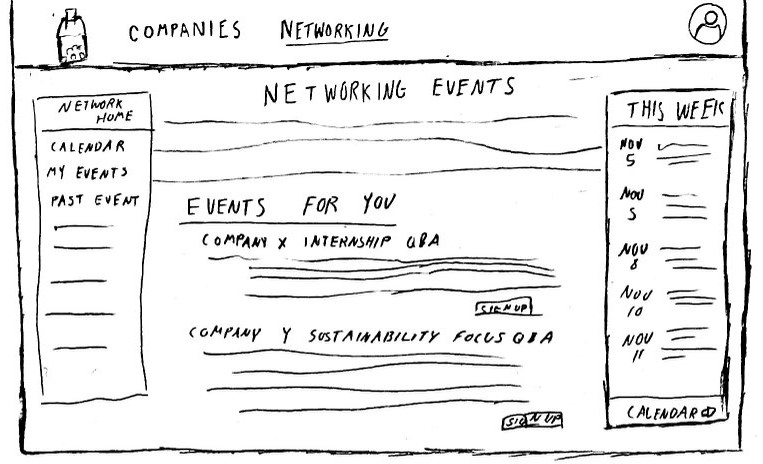 COMPANIES NETWORKING
NETWORKING EVENTS
NETWORK
HOME
CALENDAR
MY EVENTS
PAST EVENT
EVENTS FOR YOU
COMPANY X INTERNSHIP Q&A
SIGN UP
COMPANY Y SUSTAINABILITY FOCUS Q&A
SIGN UP
THIS WEEK
NOV
5
NOV
5
NOV
8
NOV
10
NOV
11
CALENDAR